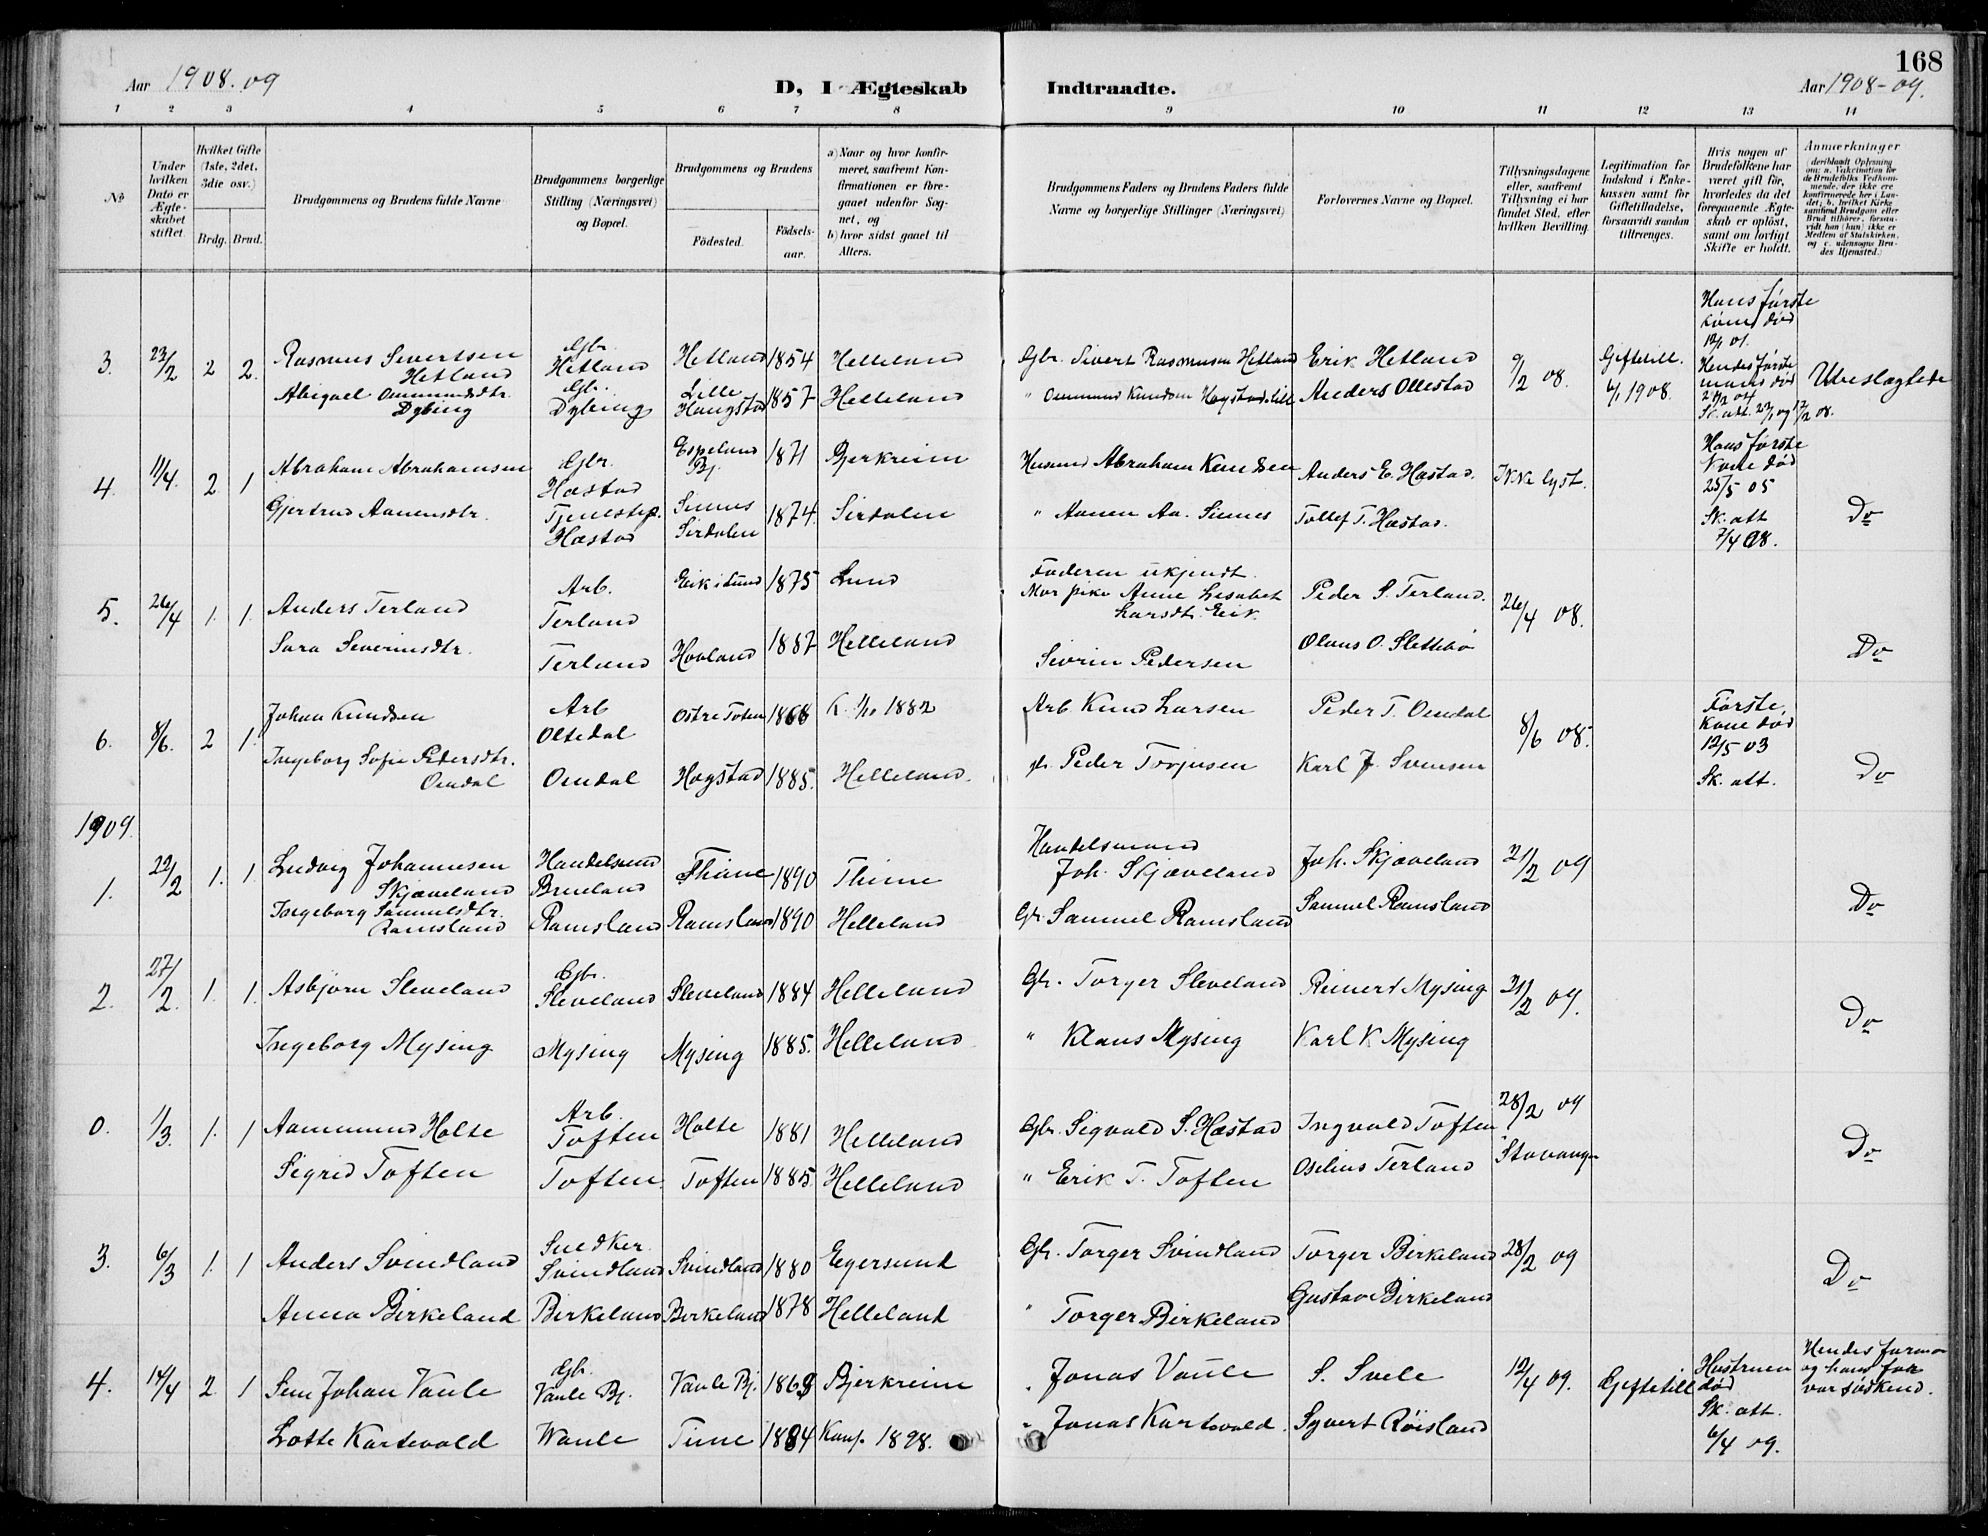 168
Aar 1908.09
D, I Ægteskab
Indtraadte.
Aar 1908-09.
1 2 3 4 5 6 7 8 9 10 11 12 13 14
No
Under hvilken Dato er Ægteskabet stiftet.
Hvilket Gifte (1ste, 2det, 3die osv.)
Brdg. Brud.
Brudgommens og Brudens fulde Navne
Brudgommens borgerlige Stilling (Næringsvei) og Bopæl.
Brudgommens og Brudens
Födested.
Födselsaar.
a) Naar og hvor konfirmeret, saafremt Konfirmationen er foregaaet udenfor Sognet, og
b) hvor sidst gaaet til Alters.
Brudgommens Faders og Brudens Faders fulde Navne og borgerlige Stillinger (Næringsvei)
Forlovernes Navne og Bopæl.
Tillysningsdagene eller, saafremt Tillysning ei har fundet Sted, efter hvilken Bevilling.
Legitimation for Indskud i Enkekassen samt for Giftetilladelse, forsaavidt saadan tiltrænges.
Hvis nogen af Brudefolkene har været gift för, hvorledes da det foregaaende Ægteskab er oplöst, samt om lovligt Skifte er holdt.
Anmærkninger
(deriblandt Oplysning om: a. Vakcination for de Brudefolks Vedkommende, der ikke ere konfirmerede her i Landet; b. hvilket Kirkesamfund Brudgom eller Brud tilhörer, forsaavidt han (hun) ikke er Medlem af Statskirken, og c. udensogns Brudes Hjemsted.)
3. 23/2 2 2. Rasmus Severtsen Hetland Gbr. Hetland Hetland 1854 Helleland Gbr. Sivert Rasmusen Hetland Erik Hetland 9/2 08. Giftetill. 6/1 1908. Hans første kone død 12/1 01.
Abigael Ommundsdtr. Dybing Gbr. Dybing Lille Haugstad 1857 Helleland " Ommund Knudsen Hogstad lill Anders Ollestad Hendes første mand død 21/2 04 Sk. att. 23/1 og 12/2 08. Ubeslægtede
4. 11/4. 2 1 Abraham Abrahamsen Gbr. Hæstad Espeland Bj. 1871 Bjerkreim Husmd Abraham Knudsen Anders E. Hæstad. Ikke lyst. Hans første Kone død 25/5 05
Gjertrud Aanensdtr. Tjenestep. Hæstad Sinnes Sirdalen 1874. Sirdalen " Aanen Aa. Sinnes Tollef T. Hæstad. Sk. att 7/4 08. Do
5. 26/4 1. 1. Anders Terland Arb. Terland Eik i Lund 1875 Lund Faderen ukjendt. Mor pike Anne Lisabet Larsdt. Eik. Peder S. Terland. 26/4 08.
Sara Severinsdtr. Terland Hovland 1887 Helleland Sivrin Pedersen Olaus O. Slettebø Do
6. 8/6. 2 1. Johan Knudsen Arb Oltedal Ostre Toten 1868 K. 1/10 1882 Arb. Knud Larsen Peder T. Omdal 8/6 08. Første, Kone død 12/5 03
Ingeborg Sofie Pedersdtr. Omdal Omdal Hogstad 1885. Helleland. gb. Peder Torjusen Karl J. Svensen Sk. att. Do
1909.
1. 22/2 1. 1 Ludvig Johannesen Skjæveland Handelsmd Brueland Thime 1890 Thime Handelsmand Joh. Skjæveland Joh. Skjæveland 21/2 09
Ingeborg Samuelsdtr. Ramsland Ramsland Ramsland 1890 Helleland Gb. Samuel Ramsland Samuel Ramsland Do
2. 27/2. 1. 1. Asbjørn Sleveland Gbr. Sleveland Sleveland 1884 Helleland Gb. Torger Sleveland Reinert Mysing 21/2 09.
Ingeborg Mysing Mysing Mysing 1885. Helleland " Klaus Mysing Karl K Mysing Do
0. 1/3. 1. 1 Aamund Holte Arb. Toften Holte 1881 Helleland Gbr. Sigvald S. Hæstad Ingvald Toften 28/2 09
Sigrid Toften Toften. Toften 1885. Helleland " Erik T. Toften Osilius Terland Stavanger Do
3. 6/3 1. 1 Anders Svindland Snedker. Svindland Svindland 1880 Egersund Gb. Torger Svindland Torger Birkeland 28/2 09
Anna Birkeland Birkeland Birkeland 1878 Helleland " Torger Birkeland Gustav Birkeland Do
4. 14/4 2 1 Sem Johan Vaule Gb. Vaule Bj. Vaule Bj. 1868 Bjerkreim " Jonas Vaule S. Svele 12/4 09. Giftetill Hustruen død Hendes farmor og hans far var søskend.
Lotte Kartevold Waule Time 1884 Konf. 1898. " Jonas Kartevold. Syvert Røisland Sk. att. 6/4 09.